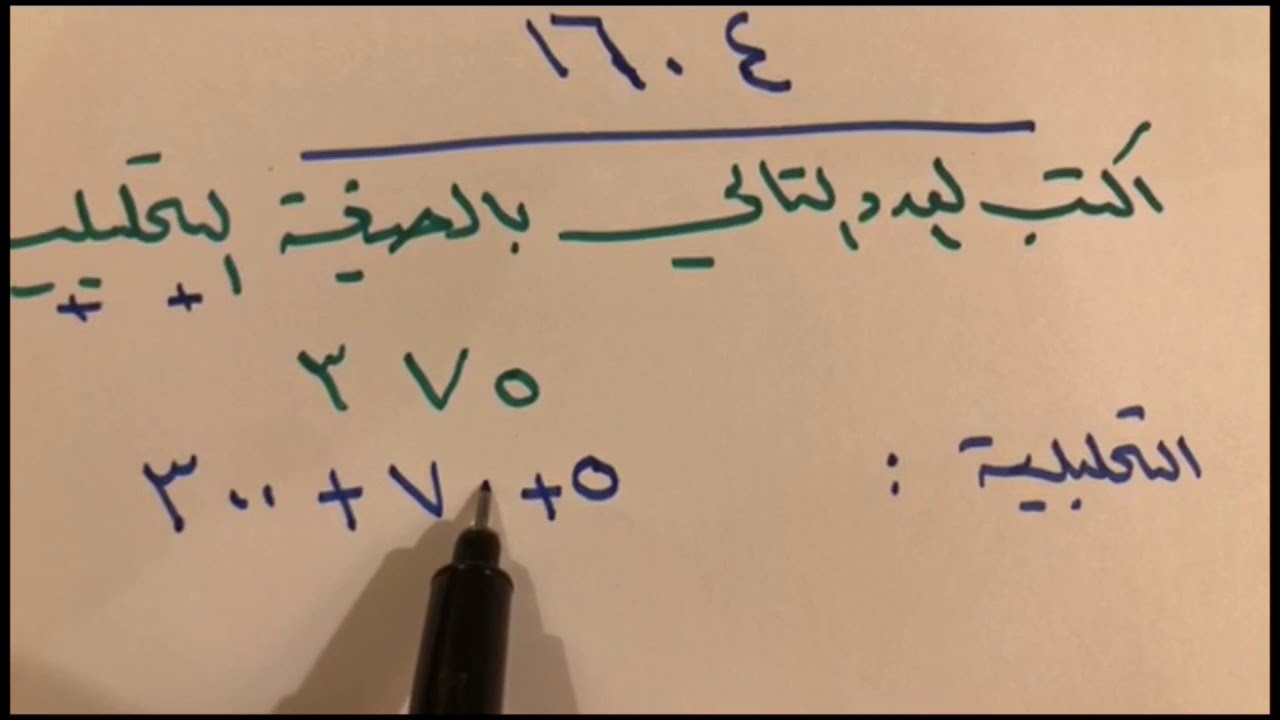 ١٦٠٤
اكتب العدد التالي بالصيغة التحليلية
+ +
٣ ٧ ٥
التحليلية :
٣٠٠ + ٧٠ + ٥